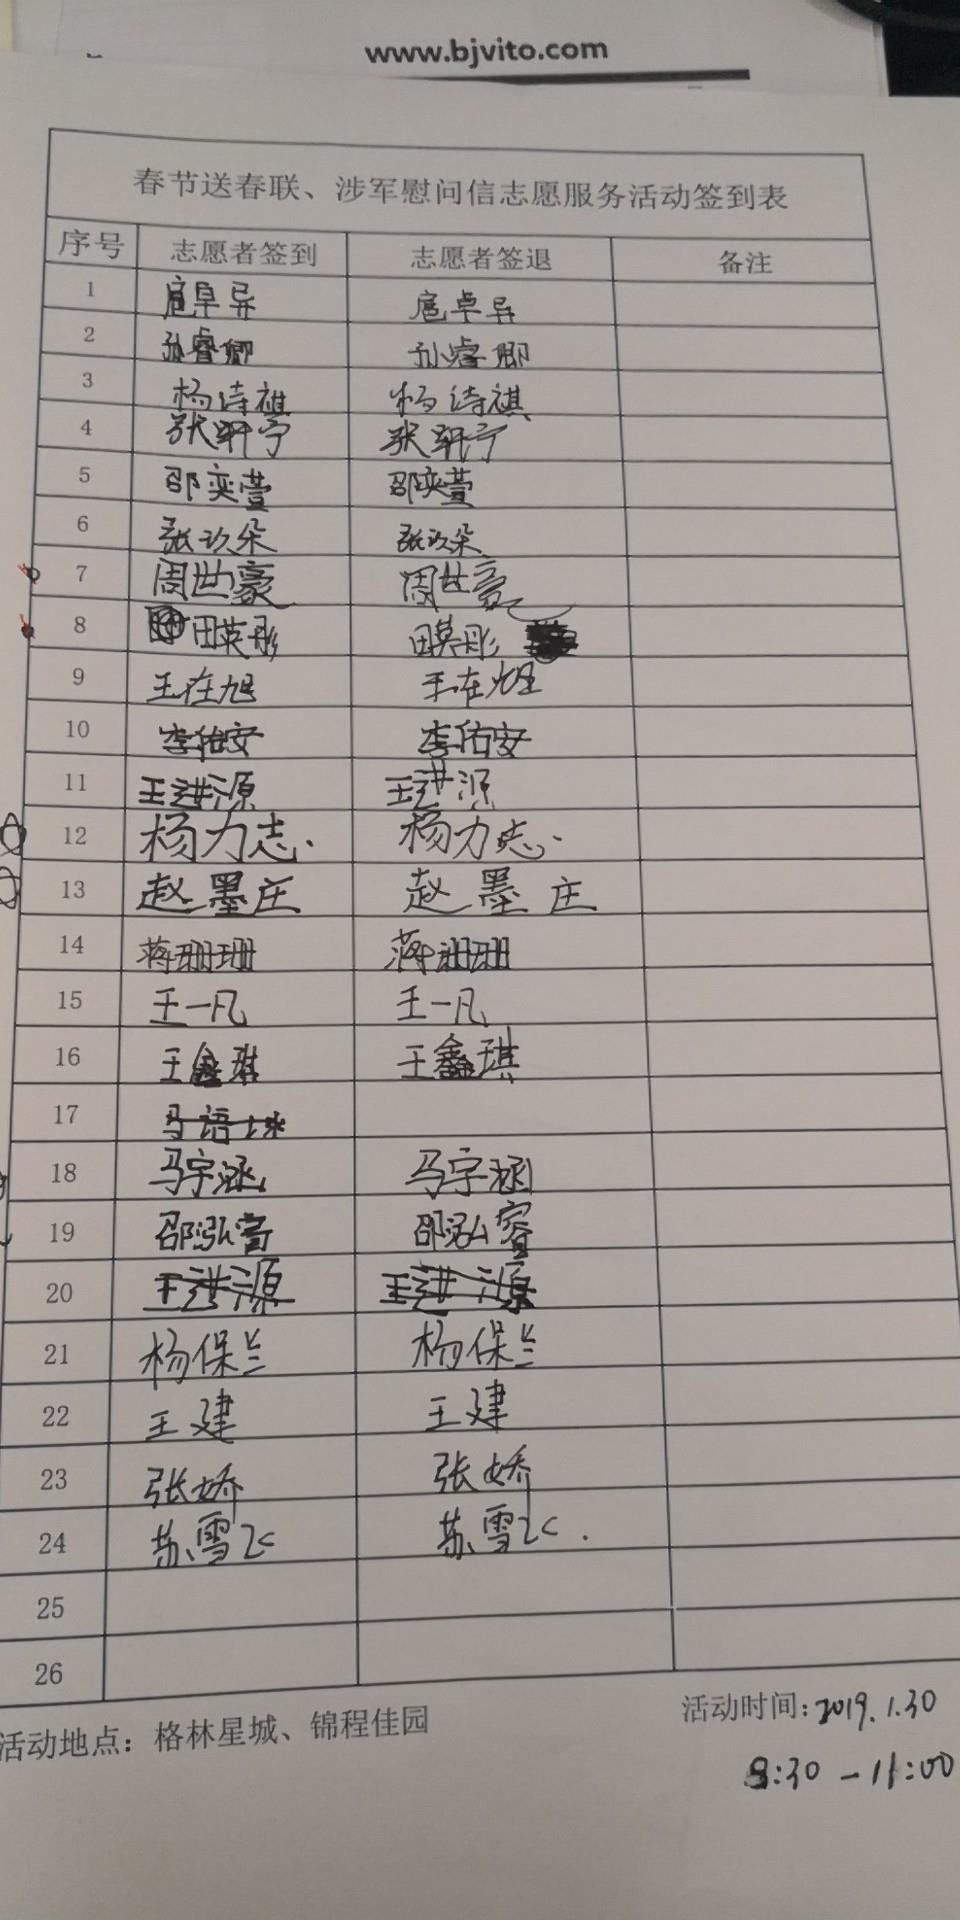 www.bjvito.com
春节送春联、涉军慰问信志愿服务活动签到表
序号 志愿者签到 志愿者签退 备注
1 扈卓异 扈卓异
2 孙睿卿 孙睿卿
3 杨诗祺 杨诗祺
4 张轩宁 张轩宁
5 邵奕萱 邵奕萱
6 张玖朵 张玖朵
7 周世豪 周世豪
8 田英彤 田英彤
9 王在旭 王在旭
10 李佑安 李佑安
11 王进源 王进源
12 杨力志. 杨力志.
13 赵墨庄 赵墨庄
14 蒋珊珊 蒋珊珊
15 王一凡 王一凡
16 王鑫琪 王鑫琪
17 马语
18 马宇涵 马宇涵
19 邵泓睿 邵泓睿
20 王进源 王进源
21 杨保兰 杨保兰
22 王建 王建
23 张娇 张娇
24 苏雪飞 苏雪飞.
25
26
活动地点：格林星城、锦程佳园 活动时间：2019.1.30
8:30-11:00